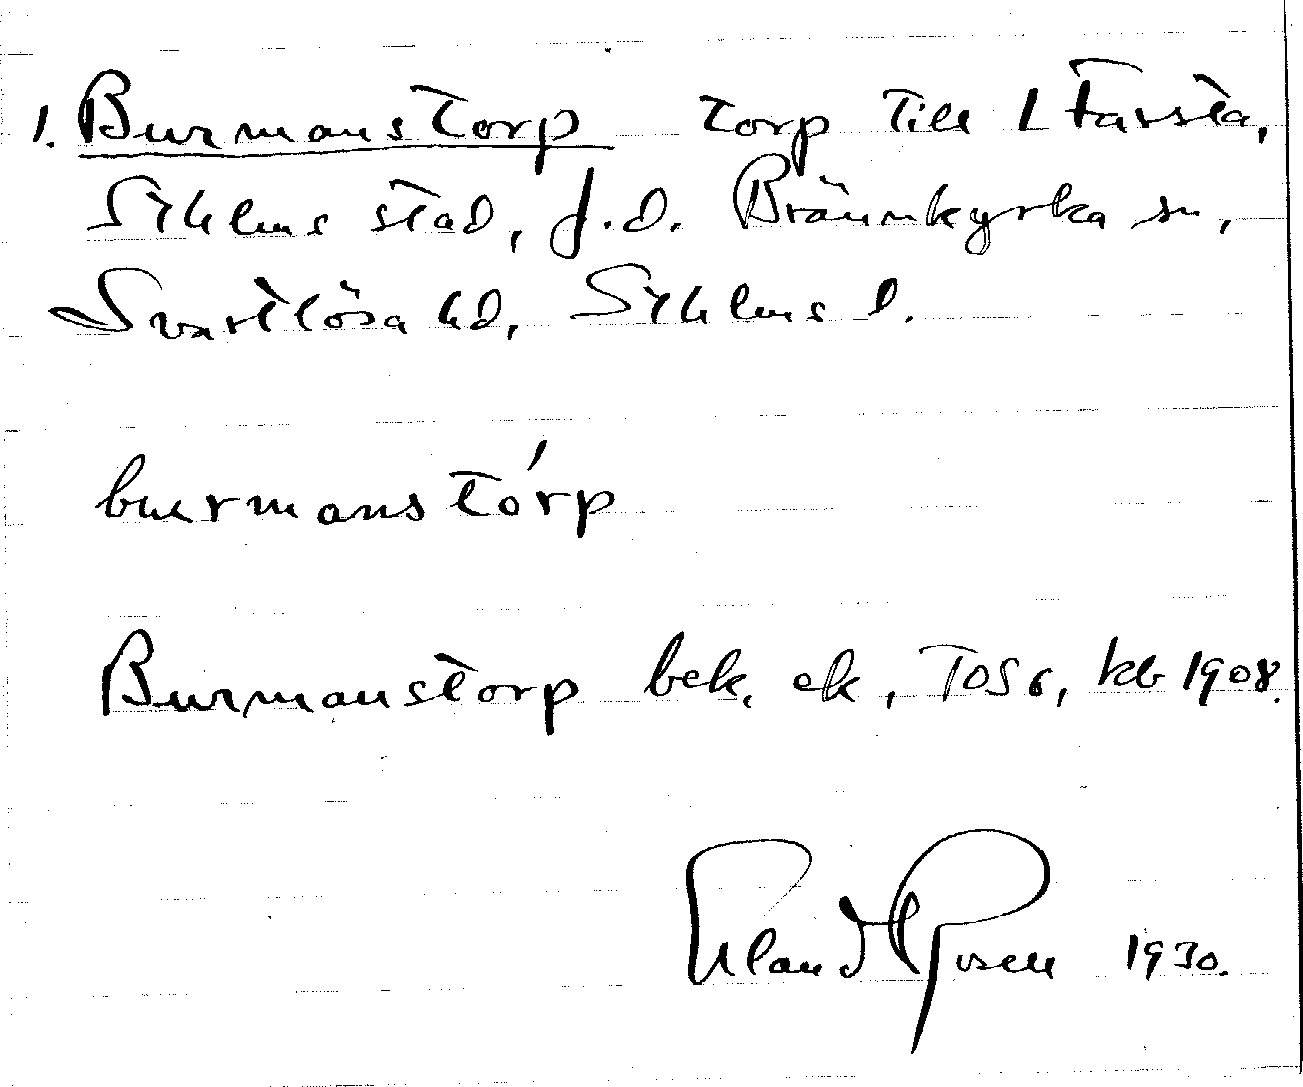 1. Burmanstorp torp till 1 Farsta,
Sthlms stad, f.d. Brännkyrka sn,
Svartlösa hd, Sthlms l.
burmanstórp
Burmanstorp bek. ek, TOS 6, kb 1908.
Erland Rosell 1930.